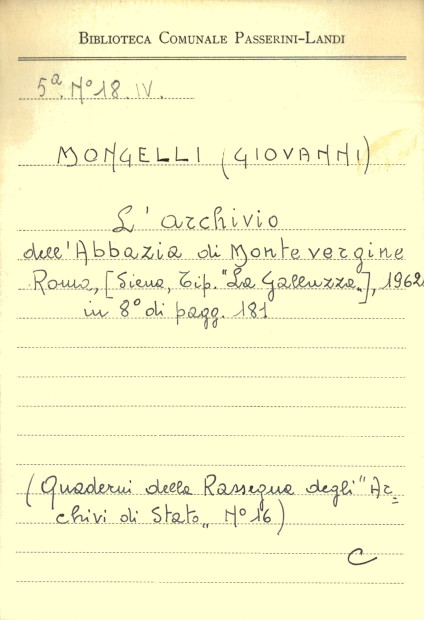 BIBLIOTECA COMUNALE PASSERINI-LANDI
5ª. N° 18. IV.
MONGELLI (GIOVANNI)
L'archivio
dell'Abbazia di Montevergine
Roma, [Siena, Tip. "La Galluzza„], 1962
in 8° di pagg. 181
(Quaderni della Rassegna degli "Ar=
chivi di Stato„ N° 16)
C